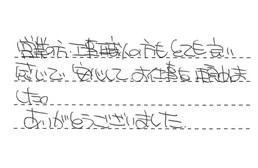 営業の方、工事職人の方もとても良い
感じで、安心してお仕事を頼めま
した。
ありがとうございました。